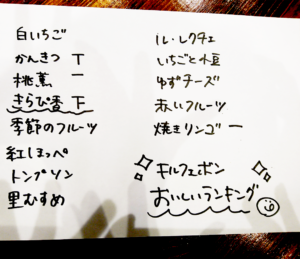 白いちご
かんきつ T
桃薫 一
きらぴ香 下
季節のフルーツ
紅ほっぺ
トンプソン
里むすめ
ル・レクチェ
いちごと小豆
ゆずチーズ
赤いフルーツ
焼きリンゴ 一
キルフェボン
おいしいランキング